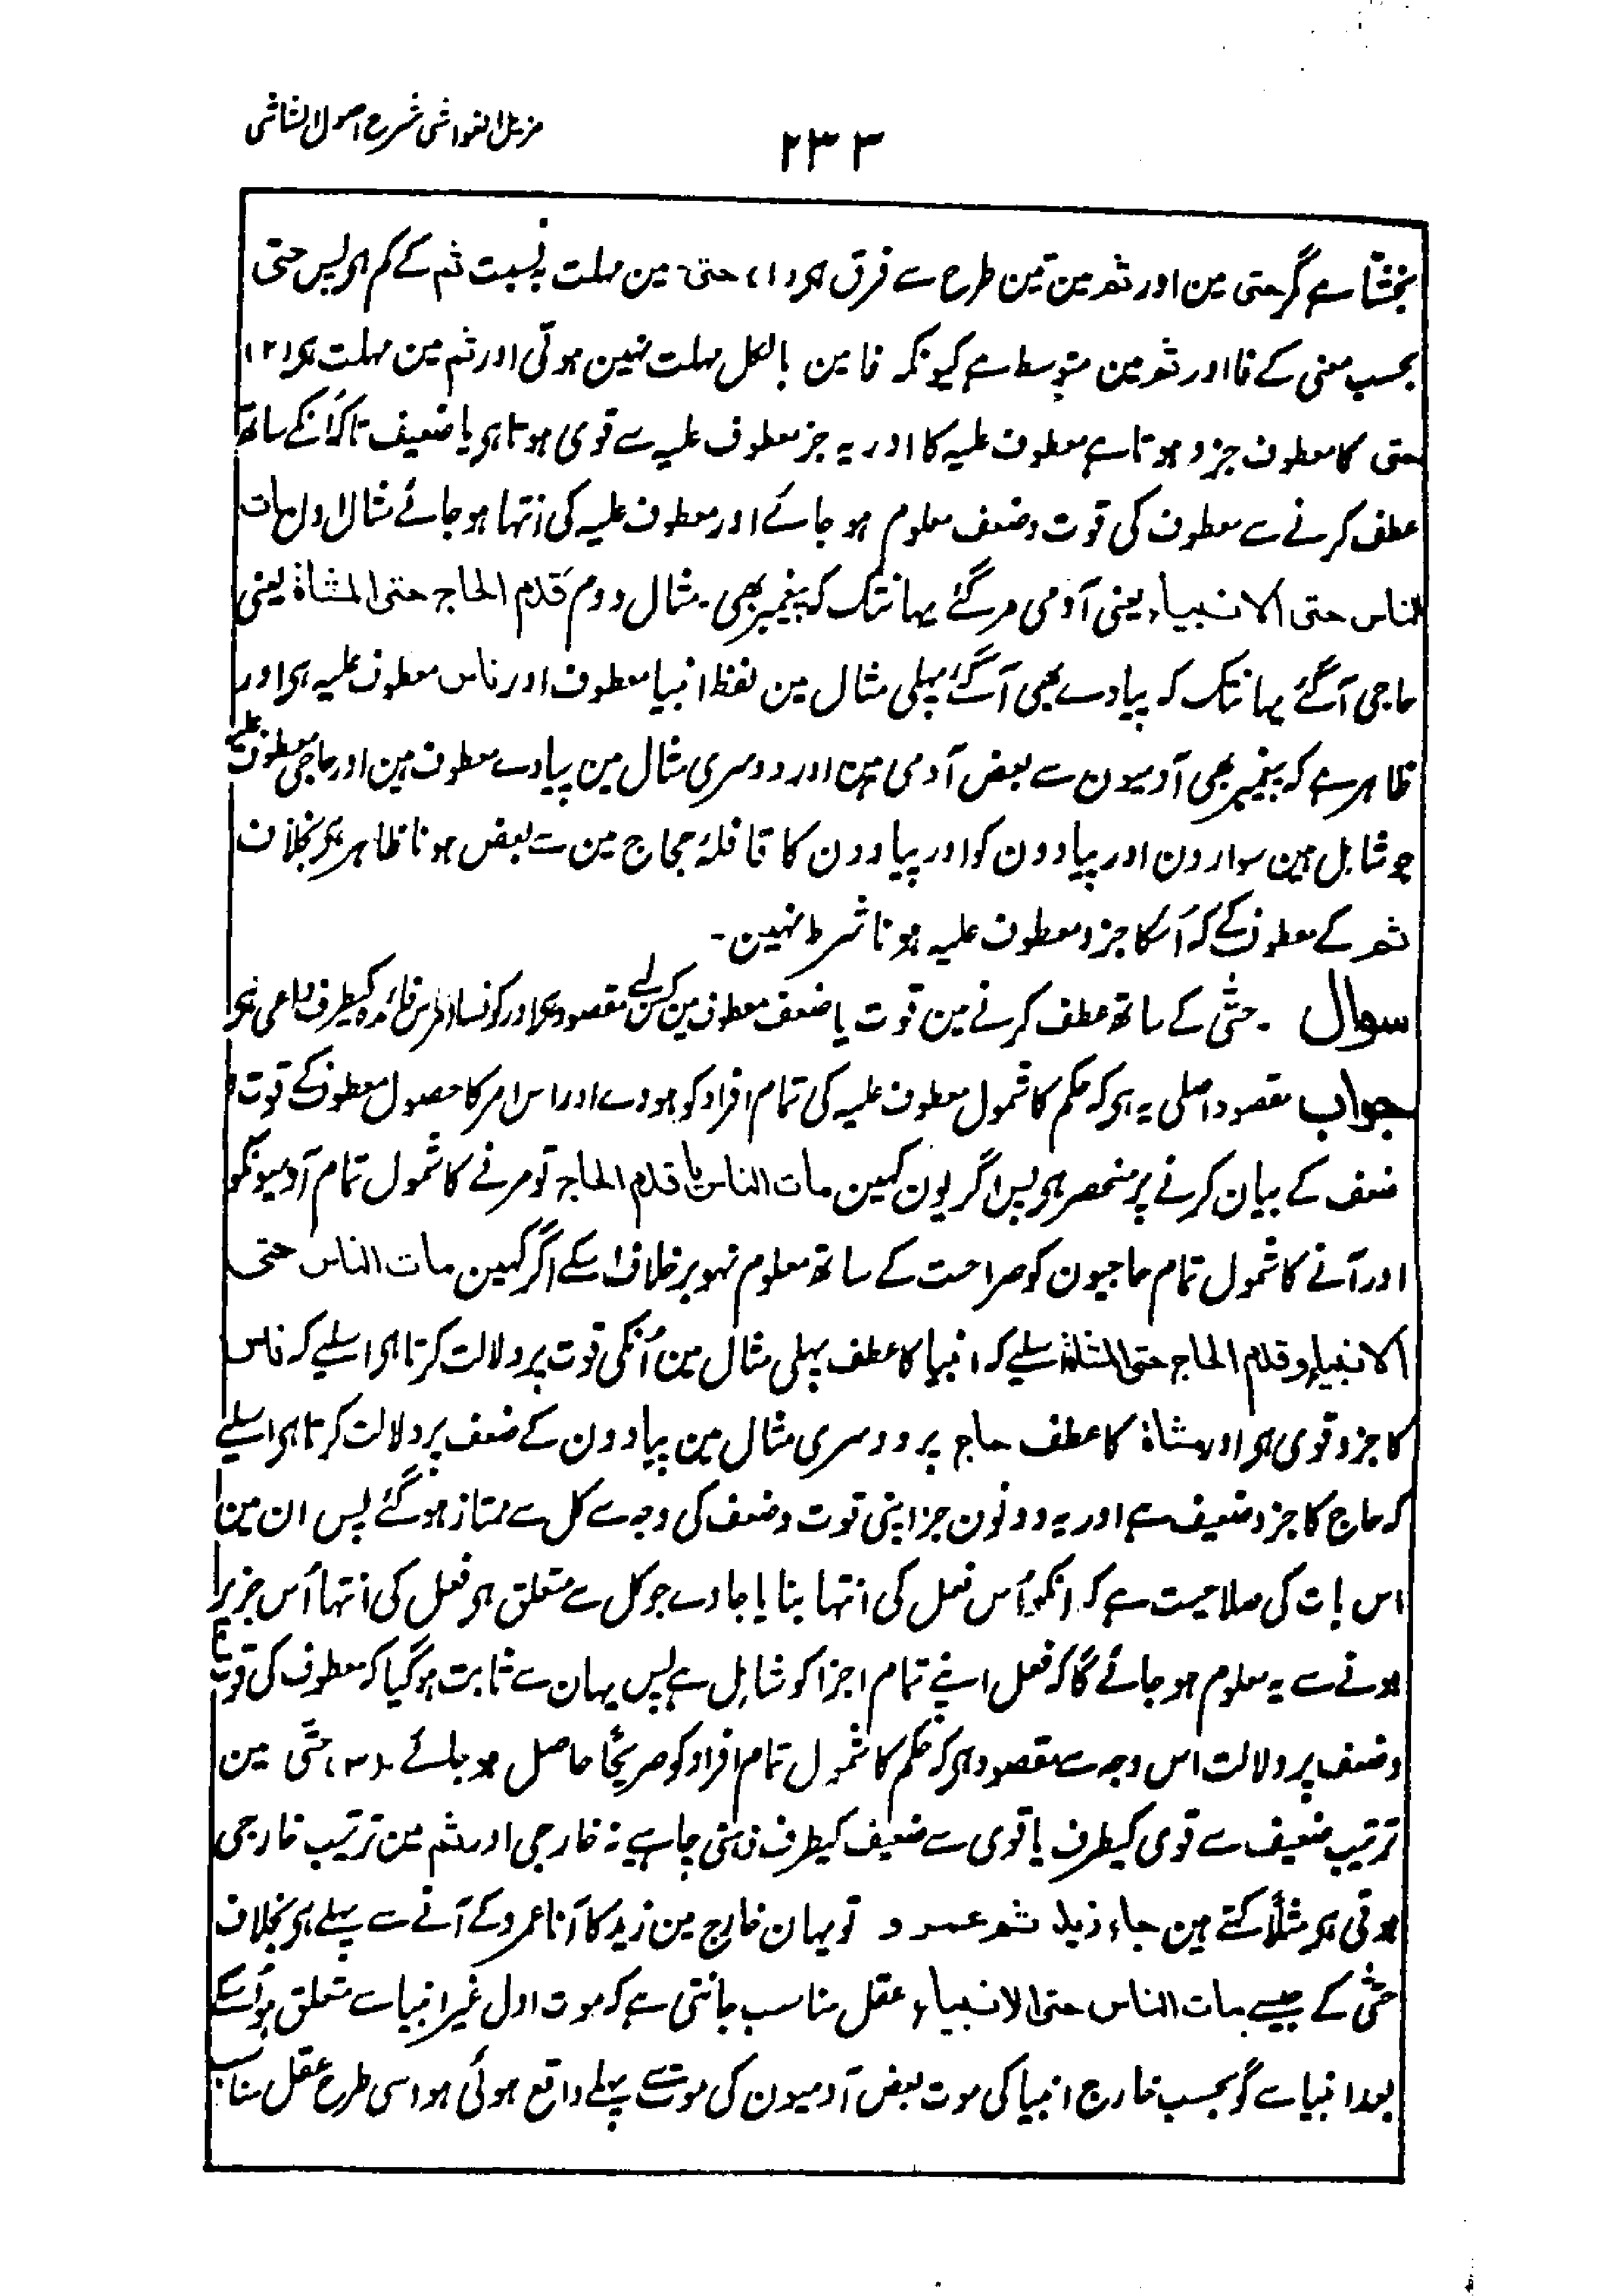 مزیل الغواشی شرح اصول الشاشی
۲۳۳
بخشتا ہے گر حتی مین اور ثم مین تین طرح سے فرق ہی (۱) حتی مین مہلت بہ نسبت ثم کے کم ہی پس حتی
بحسب معنی کے فا اور ثم مین متوسط ہے کیونکہ فا مین بالکل مہلت نہین ہوتی اور ثم مین مہلت ہی (۲)
حتی کا معطوف جزو ہوتا ہے معطوف علیہ کا اور یہ جز معطوف علیہ سے قوی ہوتا ہی یا ضعیف تاکہ اُنکے ساتھ
عطف کرنے سے معطوف کی قوت و ضعف معلوم ہو جائے اور معطوف علیہ کی انتہا ہو جائے مثال اول مات
الناس حتی الانبیاء یعنی آدمی مر گئے یہانتک کہ پیغمبر بھی ۔ مثال دوم قدم الحاج حتی المشاة یعنی
حاجی آ گئے یہانتک کہ پیادے بھی آ گئے پہلی مثال مین لفظ انبیا معطوف اور ناس معطوف علیہ ہی اور
ظاہر ہے کہ پیغمبر بھی آدمیون سے بعض آدمی ہین اور دوسری مثال مین پیادے معطوف ہین اور حاجی معطوف علیہ
جو شامل ہین سوارون اور پیادون کو اور پیادون کا قافلۂ حجاج مین سے بعض ہونا ظاہر ہی بخلاف
ثم کے معطوف کے کہ اُسکا جزو معطوف علیہ ہونا شرط نہین ۔
سوال ۔ حتّٰی کے ساتھ عطف کرنے مین قوت یا ضعف معطوف مین کس لیے مقصود ہی اور کونسا امر اس فائدہ کیطرف داعی ہی
جواب مقصود اصلی یہ ہی کہ حکم کا شمول معطوف علیہ کی تمام افراد کو ہووے اور اس امر کا حصول معطوف کے قوت و
ضعف کے بیان کرنے پر منحصر ہی پس اگر یون کہین مات الناس یا قدم الحاج تو مرنے کا شمول تمام آدمیونکو
اور آنے کا شمول تمام حاجیون کو صراحت کے ساتھ معلوم نہو برخلاف اسکے اگر کہین مات الناس حتی
الانبیاء و قدم الحاج حتی المشاة اسلیے کہ انبیا کا عطف پہلی مثال مین اُنکی قوت پر دلالت کرتا ہی اسلیے کہ ناس
کا جزو قوی ہی اور مشاة کا عطف حاج پر دوسری مثال مین پیادون کے ضعف پر دلالت کرتا ہی اسلیے
کہ حاج کا جزو ضعیف ہے اور یہ دونون جز اپنی قوت و ضعف کی وجہ سے کل سے ممتاز ہو گئے پس ان مین
اس بات کی صلاحیت ہے کہ انکو اُس فعل کی انتہا بنایا جاوے جو کل سے متعلق ہی فعل کی انتہا اُس جز پر
ہونے سے یہ معلوم ہو جائے گا کہ فعل اپنے تمام اجزا کو شامل ہے پس یہان سے ثابت ہو گیا کہ معطوف کی قوت
و ضعف پر دلالت اس وجہ سے مقصود ہی کہ حکم کا شمول تمام افراد کو صریحًا حاصل ہو جائے ۔ (۳) حتّٰی مین
ترتیب ضعیف سے قوی کیطرف یا قوی سے ضعیف کیطرف ذہنی چاہیے نہ خارجی اور ثم مین ترتیب خارجی
ہوتی ہی مثلًا کہتے ہین جاء زید ثم عمرو تو یہان خارج مین زید کا آنا عمرو کے آنے سے پہلے ہی بخلاف
حتّٰی کے جیسے مات الناس حتی الانبیاء عقل مناسب جانتی ہے کہ موت اول غیر انبیا سے متعلق ہو اُسکے
بعد انبیا سے گو بحسب خارج انبیا کی موت بعض آدمیون کی موت سے پہلے واقع ہوئی ہو اسی طرح عقل مناسب